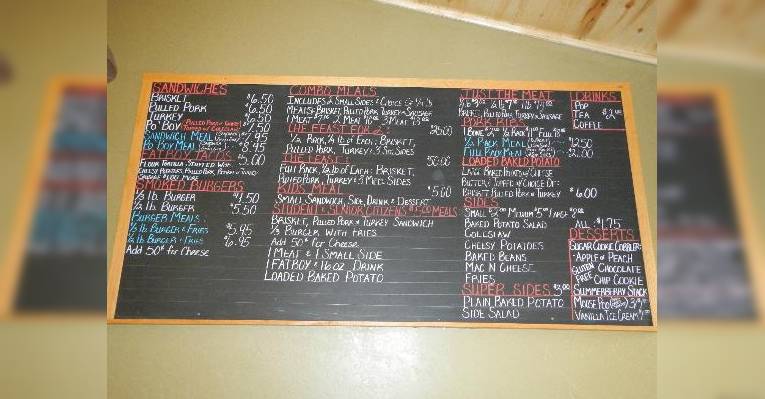 SANDWICHES
BRISKET $6.50
PULLED PORK $6.50
TURKEY $6.50
PO BOY $7.50
SANDWICH MEAL $7.95
PO BOY MEAL $8.95
FATBOY TACOS $5.00
FLOUR TORTILLA STUFFED WITH
CHEESY POTATOES, PULLED PORK,
SMOKED BURGERS
1/3 lb BURGER $4.50
1/2 lb BURGER $5.50
BURGER MEALS:
1/3 lb BURGER & FRIES $5.95
1/2 lb BURGER & FRIES $6.95
Add 50¢ for Cheese
COMBO MEALS
INCLUDES 2 SMALL SIDES & CHOICE OF 1/4 lb
MEATS: BRISKET, PULLED PORK, TURKEY & SAUSAGE
1 MEAT 2 MEAT 3 MEAT
THE FEAST FOR 2:
1/2 RACK, 1/4 lb OF EACH: BRISKET,
PULLED PORK, TURKEY & 3 SM. SIDES
THE FEAST:
FULL RACK, 1/2 lb OF EACH: BRISKET,
PULLED PORK, TURKEY & 3 MED. SIDES
KIDS MEAL $5.00
SMALL SANDWICH, SIDE, DRINK & DESSERT
STUDENT & SENIOR CITIZENS $5.00 MEALS
BRISKET, PULLED PORK & TURKEY SANDWICH
1/3 BURGER WITH FRIES
Add 50¢ for Cheese
1 MEAT & 1 SMALL SIDE
1 FATBOY & 16 oz. DRINK
LOADED BAKED POTATO
JUST THE MEAT
BRISKET, PULLED PORK, TURKEY & SAUSAGE
PORK RIBS
1 BONE 1/2 RACK FULL
1/2 RACK MEAL $12.50
FULL RACK MEAL
LOADED BAKED POTATO
LARGE BAKED POTATO & CHEESE
BUTTER & TOPPED W/ CHOICE OF:
BRISKET, PULLED PORK & TURKEY $6.00
SIDES
SMALL $2.00 MEDIUM $5 LARGE
BAKED POTATO SALAD
COLESLAW
CHEESY POTATOES
BAKED BEANS
MAC N CHEESE
FRIES
SUPER SIDES $3.00
PLAIN BAKED POTATO
SIDE SALAD
DRINKS
POP
TEA
COFFEE
DESSERTS
ALL $1.75
SUGAR COOKIE COBBLER:
APPLE OR PEACH
GLUTEN FREE CHOCOLATE CHIP COOKIE
SUMMERBERRY STACK
VANILLA ICE CREAM